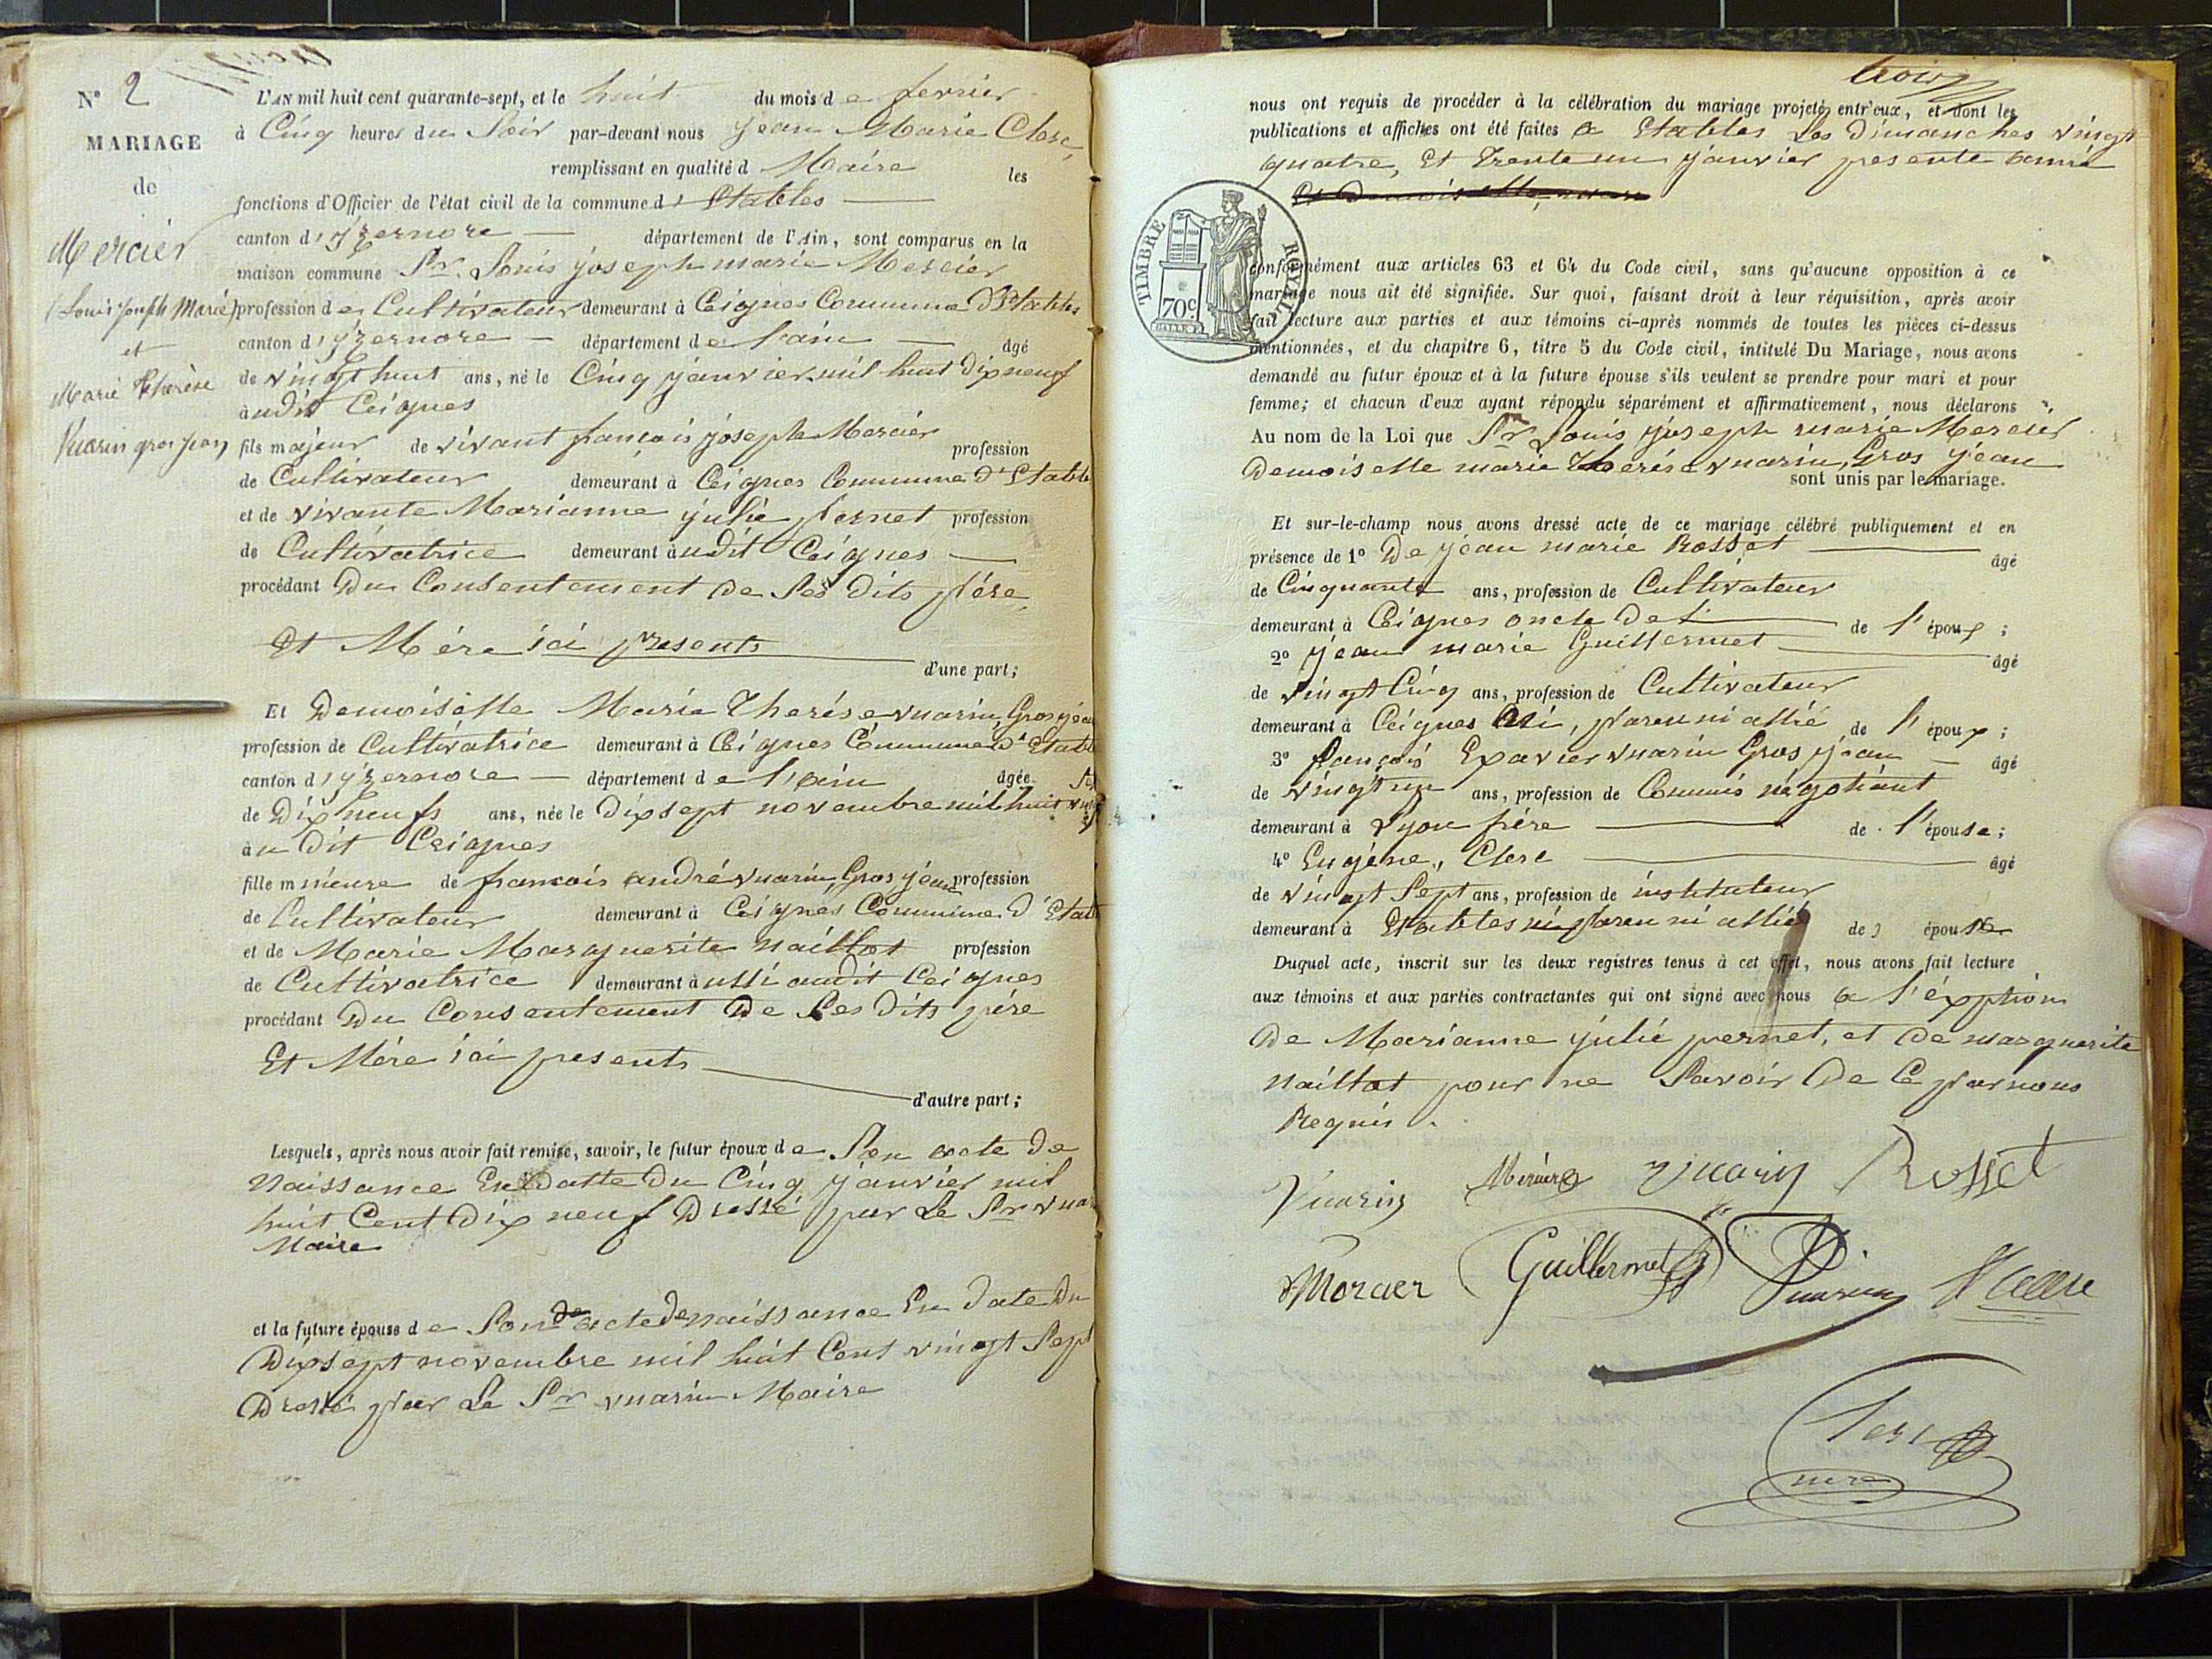 N° 2
MARIAGE
de
Mercier
(Louis Joseph Marie)
et
Marie Thérèse
Vuarin gros jean
L'AN mil huit cent quarante-sept, et le huit du mois de fevrier
à Cinq heures du Soir par-devant nous jean Marie Clerc,
remplissant en qualité d Maire les
fonctions d'Officier de l'état civil de la commune d'Etables
canton d'yzernore département de l'Ain, sont comparus en la
maison commune Sr. Louis joseph marie Mercier
profession de Cultivateur demeurant à Ceignes Commune D'Etables
canton d'yzernore département de l'ain âgé
de vingt huit ans, né le Cinq janvier mil huit Dix neuf
audit Ceignes
fils majeur de vivant françois joseph Mercier profession
de Cultivateur demeurant à Ceignes Commune D'Etable
et de vivante Marianne julie pernet profession
de Cultivatrice demeurant audit Ceignes
procédant Du Consentement de Ses Dits père
Et Mère ici presents d'une part;
Et Demoiselle Marie Therése vuarin, Gros jean
profession de Cultivatrice demeurant à Ceignes Commune d'Etabl
canton d'yzernore département de l'ain âgée
de Dix neufs ans, née le Dix sept novembre mil huit
au Dit Ceignes
fille mineure de francois andré vuarin, Gros jean profession
de Cultivateur demeurant à Ceignes Commune D'Etabl
et de Marie Marguerite naillot profession
de Cultivatrice demeurant aussi audit Ceignes
procédant Du Consentement De Ses Dits père
Et Mère ici presents
d'autre part;
Lesquels, après nous avoir fait remise, savoir, le futur époux de Son acte De
Naissance En datte Du Cinq janvier mil
huit Cent Dix neuf Dressé par Le Sr vuar
Maire
et la future épouse de Son acte De naissance En Date Du
Dix sept novembre mil huit Cent vingt Sept
Dressé par Le Sr vuarin Maire
trois
nous ont requis de procéder à la célébration du mariage projeté entr'eux, et dont les
publications et affiches ont été faites a Etables Les Dimanches vingt
quatre, Et Trente un janvier presente année
TIMBRE ROYAL
70c
conformément aux articles 63 et 64 du Code civil, sans qu'aucune opposition à ce
mariage nous ait été signifiée. Sur quoi, faisant droit à leur réquisition, après avoir
fait lecture aux parties et aux témoins ci-après nommés de toutes les pièces ci-dessus
mentionnées, et du chapitre 6, titre 5 du Code civil, intitulé Du Mariage, nous avons
demandé au futur époux et à la future épouse s'ils veulent se prendre pour mari et pour
femme; et chacun d'eux ayant répondu séparément et affirmativement, nous déclarons
Au nom de la Loi que Sr Louis joseph marie Mercier
Demoiselle marie Therése vuarin, Gros jean
sont unis par le mariage.
Et sur-le-champ nous avons dressé acte de ce mariage célébré publiquement et en
présence de 1° De jean marie Rosset âgé
de Cinquante ans, profession de Cultivateur
demeurant à Ceignes oncle De L' de l'époux;
2° jean marie Guillermet âgé
de vingt Cinq ans, profession de Cultivateur
demeurant à Ceignes paren ni allié de l'époux;
3° françois Exavier vuarin Gros jean âgé
de vingt un ans, profession de Commis négotiant
demeurant à Lyon frére de l'épouse;
4° Eugéne, Clerc âgé
de vingt Sept ans, profession de instituteur
demeurant à Etables ni paren ni allié de épouse
Duquel acte, inscrit sur les deux registres tenus à cet effet, nous avons fait lecture
aux témoins et aux parties contractantes qui ont signé avec nous a l'éxption
De Marianne julie pernet, et De marguerite
naillot pour ne Savoir De Ce par nous
Requis.
Vuarin Mercier Vuarin Rosset
Mercier Guillermet Vuarin Clerc
Clerc
mre